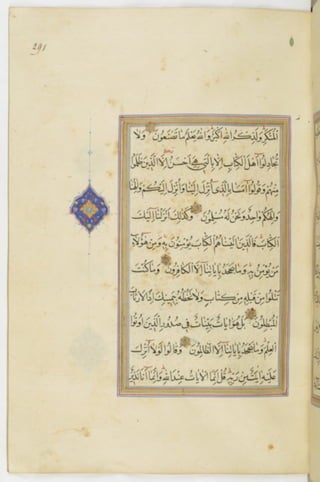 291
المنكر ولذكر الله اكبر والله يعلم ما تصنعون ولا
تجادلوا اهل الكتاب الا بالتي هي احسن الا الذين ظلموا
منهم وقولوا آمنا بالذي انزل الينا وانزل اليكم والهنا
والهكم واحد ونحن له مسلمون وكذلك انزلنا اليك
الكتاب فالذين آتيناهم الكتاب يؤمنون به ومن هؤلاء
من يؤمن به وما يجحد بآياتنا الا الكافرون وما كنت
تتلوا من قبله من كتاب ولا تخطه بيمينك اذا لارتاب
المبطلون بل هو آيات بينات في صدور الذين اوتوا
العلم وما يجحد بآياتنا الا الظالمون وقالوا لولا انزل
عليه آيات من ربه قل انما الآيات عند الله وانما انا نذير